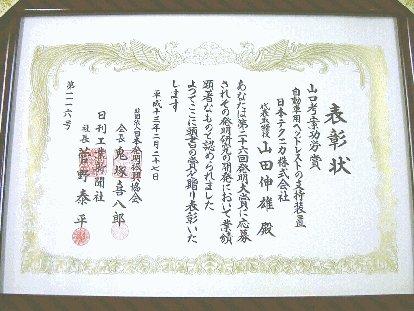 表彰状
山口考案功労賞
自動車用ヘッドレストの支持装置
日本テクニカ株式会社
代表取締役 山田伸雄 殿
あなたは第二十六回発明大賞に応募
されその発明研究の開発において業績
顕著なものて認められました
よつてここに頭書の賞を贈り表彰いた
します
平成十三年二月二十七日
財団法人日本発明振興協会
会長 鬼塚喜八郎
日刊工業新聞社
社長 菅野泰平
第二二六号